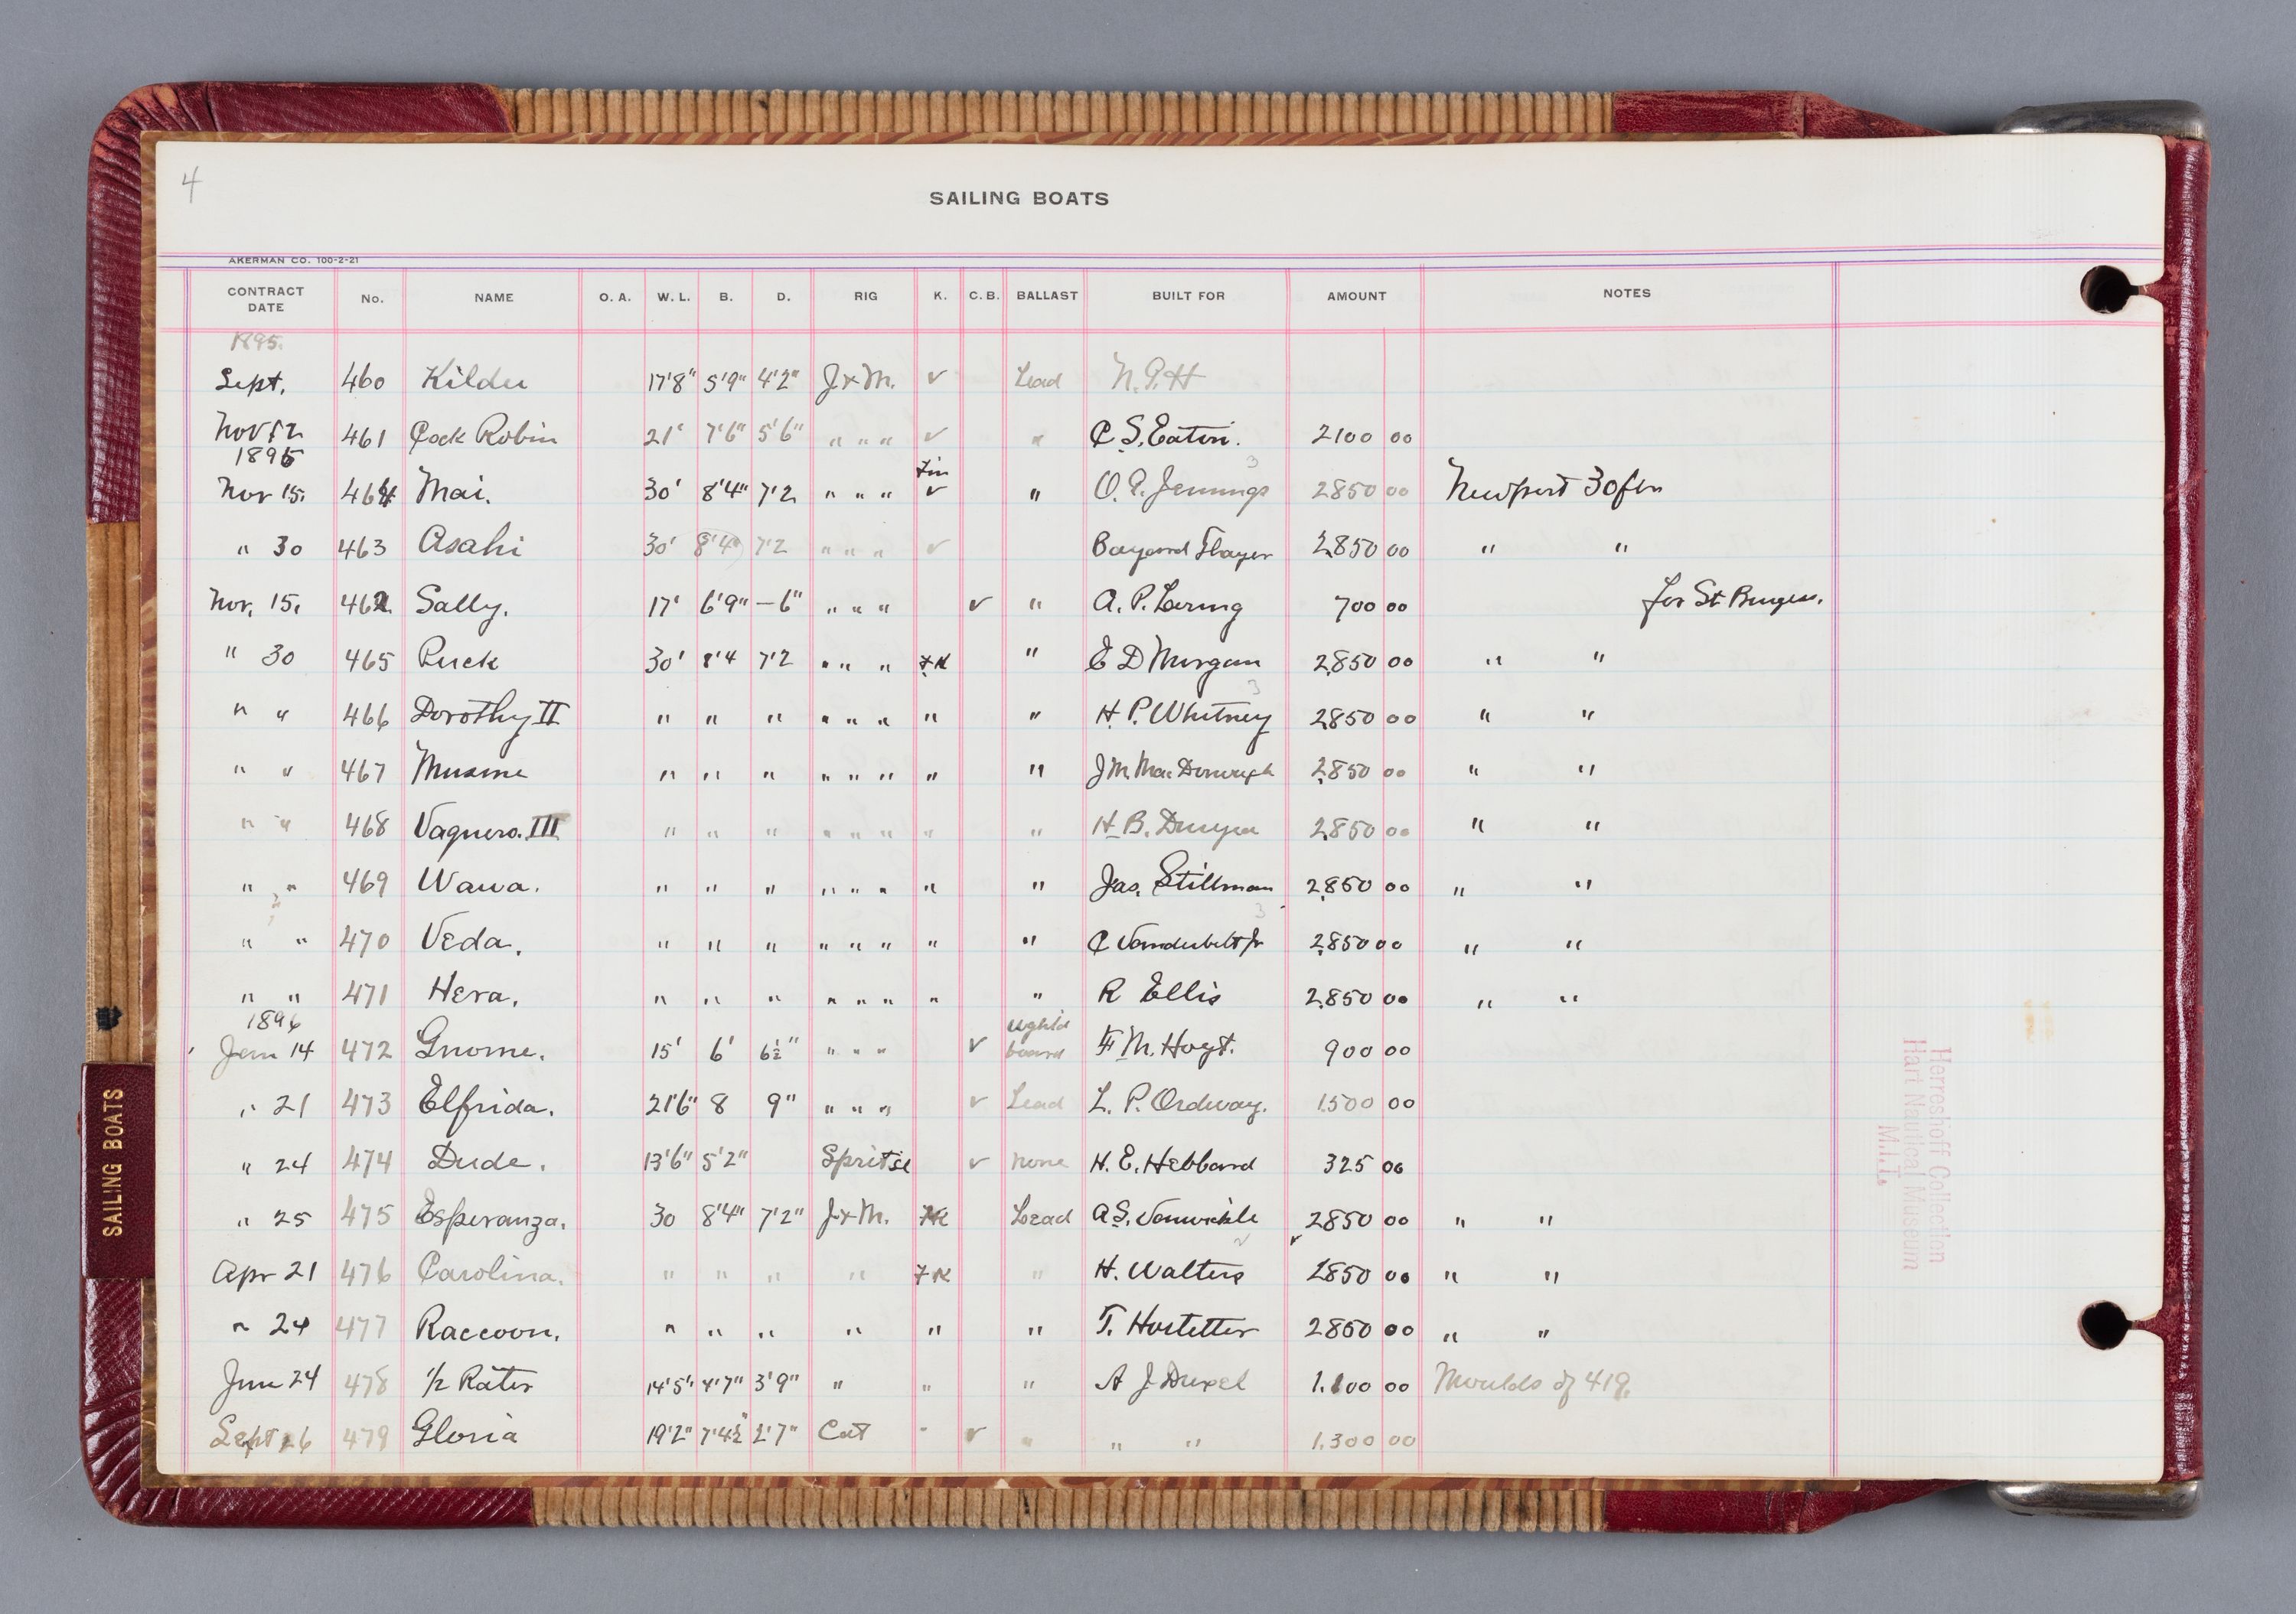 4
SAILING BOATS
AKERMAN CO. 100-2-21
CONTRACT DATE No. NAME O. A. W. L. B. D. RIG K. C. B. BALLAST BUILT FOR AMOUNT NOTES
1895.
Sept. 460 Kildee 17'8" 5'9" 4'2" J + M. ✓ Lead N.G.H
Nov 12 461 Cock Robin 21' 7'6" 5'6" " " " ✓ " C. S. Eaton. 2100 00
1895
Nov 15. 464 Mai. 30' 8'4" 7'2 " " " Fin ✓ " O. G. Jennings 2850 00 Newport 30 ftr
" 30 463 Asahi 30' 8'4" 7'2 " " " ✓ Bayard Thayer 2850 00 " "
Nov. 15. 462 Sally. 17' 6'9" – 6" " " " ✓ " A. P. Loring 700 00 for St Burgess.
" 30 465 Puck 30' 8'4 7'2 " " " F K " E D Morgan 2850 00 " "
" " 466 Dorothy II " " " " " " " " H. P. Whitney 2850 00 " "
" " 467 Musme " " " " " " " " J M Mac Donough 2850 00 " "
" " 468 Vaquero. III " " " " " " " " H. B. Duryea 2850 00 " "
" " 469 Wawa. " " " " " " " " Jas. Stillman 2850 00 " "
" " 470 Veda. " " " " " " " " C Vanderbilt Jr 2850 00 " "
" " 471 Hera. " " " " " " " " R Ellis 2850 00 " "
1896
Jan 14 472 Gnome. 15' 6' 6½" " " " ✓ weght'd board F. M. Hoyt. 900 00
" 21 473 Elfrida. 21'6" 8 9" " " " ✓ Lead L. P. Ordway. 1500 00
" 24 474 Dude. 13'6" 5'2" Spritsl ✓ none H. E. Hebbard 325 00
" 25 475 Esperanza. 30 8'4" 7'2" J + M. FK Lead A. S. Vanwinkle 2850 00 " "
Apr 21 476 Carolina. " " " " F K " H. Walters 2850 00 " "
" 24 477 Raccoon. " " " " " " T. Hostetter 2850 00 " "
June 24 478 ½ Rater 14'5" 4'7" 3'9" " " " A J Drexel 1.100 00 Moulds of 419.
Sept 26 479 Gloria 19'2" 7'4½" 2'7" Cat " ✓ " " " 1.300 00
SAILING BOATS
Herreshoff Collection
Hart Nautical Museum
M.I.T.